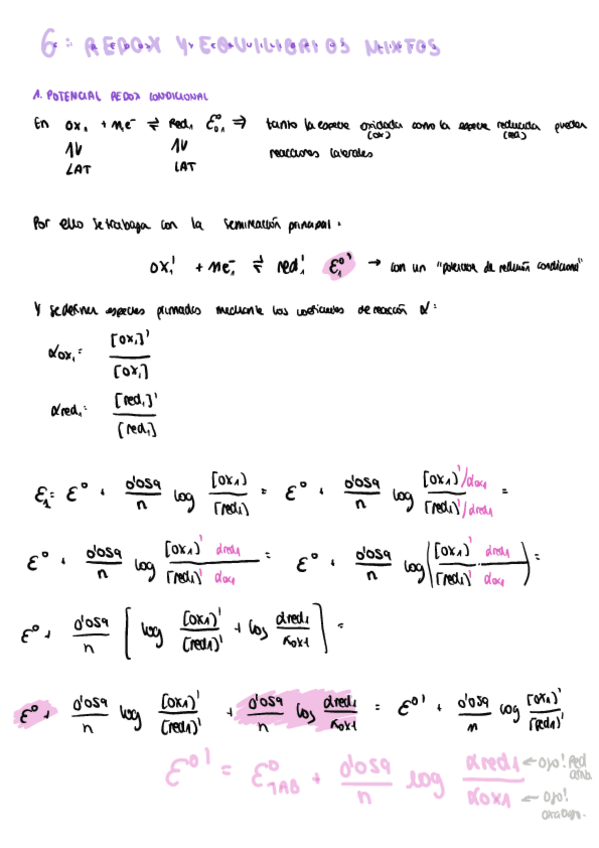 6: REDOX Y EQUILIBRIOS MIXTOS
1. POTENCIAL REDOX CONDICIONAL
En ox₁ + ne⁻ ⇌ red₁ Ɛ°₀₁ ⇒ tanto la especie oxidada como la especie reducida pueden
(ox) (red)
⇅ ⇅ reacciones laterales
LAT LAT
Por ello se trabaja con la semirreacción principal:
ox₁' + ne⁻ ⇌ red₁' Ɛ₁°' → con un "potencial de reducción condicional"
Y se definen especies primadas mediante los coeficientes de reacción α:
αox₁ = [ox₁]' / [ox₁]
αred₁ = [red₁]' / [red₁]
Ɛ₁ = Ɛ° + 0'059/n log [ox₁]/[red₁] = Ɛ° + 0'059/n log ([ox₁]'/αox₁)/([red₁]'/αred₁) =
Ɛ° + 0'059/n log [ox₁]' αred₁/[red₁]' αox₁ = Ɛ° + 0'059/n log ([ox₁]' αred₁/[red₁]' αox₁) =
Ɛ° + 0'059/n [log [ox₁]'/[red₁]' + log αred₁/αox₁] =
Ɛ° + 0'059/n log [ox₁]'/[red₁]' + 0'059/n log αred₁/αox₁ = Ɛ°' + 0'059/n log [ox₁]'/[red₁]'
Ɛ°' = Ɛ°TAB + 0'059/n log αred₁/αox₁ ← ojo! Red arriba
← ojo! Ox abajo